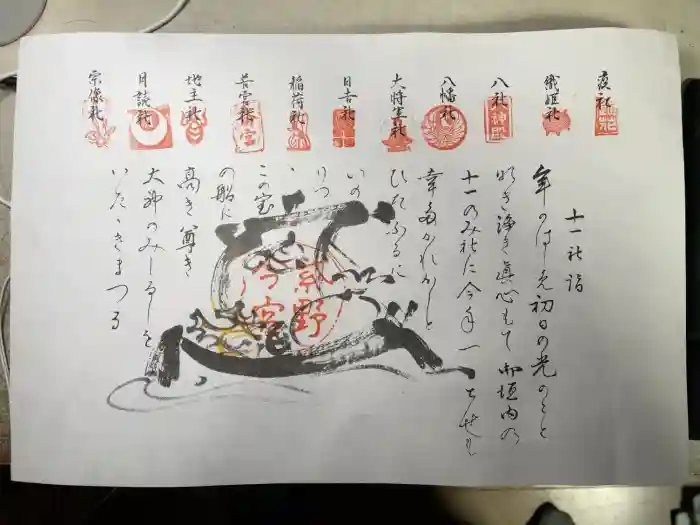 疫社
織姫社
八社
八幡社
大将軍社
日吉社
稲荷社
若宮社
地主社
月読社
宗像社
十一社詣
年のはじめ初日の光のもと
明き浄き眞心もて御垣内の
十一のみ社に今年一とせも
幸多かれかしと
ひたふるに
いの
りつ
ゝ
この宝
の船に
高き尊き
大神のみしるしを
いたゝきまつる
紫野
今宮